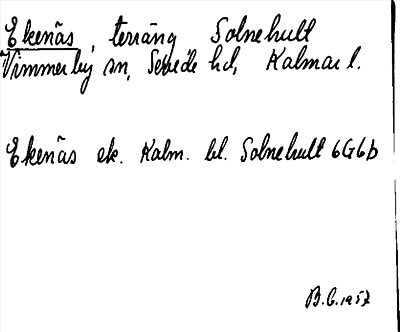 Ekenäs, terräng Solnehult
Vimmerby sn, Sevede hd, Kalmar l.
Ekenäs ek. Kalm. bl. Solnehult 6G6b
B.C. 1957